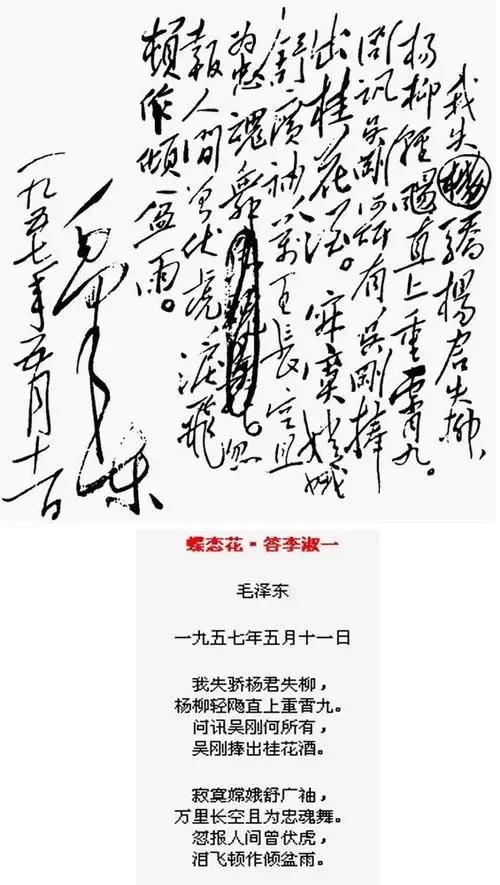 我失楊驕楊君失柳，
楊柳輕颺直上重霄九。
问訊吴剛何所有，吴剛捧
出桂花酒。寂寞嫦娥
舒廣袖，萬里長空且
为忠魂舞。忽
報人間曾伏虎，淚飛
頓作傾盆雨。
毛泽东
一九五七年五月十一日
蝶恋花·答李淑一
毛泽东
一九五七年五月十一日
我失骄杨君失柳，
杨柳轻飏直上重霄九。
问讯吴刚何所有，
吴刚捧出桂花酒。
寂寞嫦娥舒广袖，
万里长空且为忠魂舞。
忽报人间曾伏虎，
泪飞顿作倾盆雨。